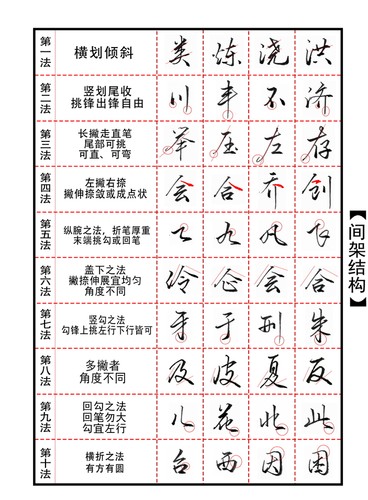 【间架结构】
第一法 横划倾斜 类 炼 浇 洪
第二法 竖划尾收
挑锋出锋自由 川 丰 不 济
第三法 长撇走直笔
尾部可挑
可直、可弯 举 压 左 存
第四法 左撇右捺
撇伸捺敛或成点状 会 合 乔 创
第五法 纵腕之法，折笔厚重
末端挑勾或回笔 九 凡
第六法 盖下之法
撇捺伸展宜均匀
角度不同 伶 企 会 合
第七法 竖勾之法
勾锋上挑左行下行皆可 手 于 刑 朱
第八法 多撇者
角度不同 及 皮 夏 反
第九法 回勾之法
回笔勿大
勾宜左行 儿 花 北 此
第十法 横折之法
有方有圆 台 西 因 困